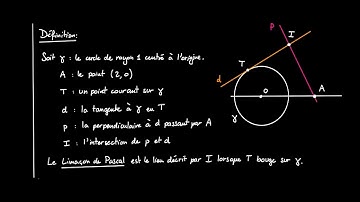 Définition:
Soit γ : le cercle de rayon 1 centré à l'origine.
A : le point (2,0)
T : un point courant sur γ
d : la tangente à γ en T
p : la perpendiculaire à d passant par A
I : l'intersection de p et d
Le Limaçon de Pascal est le lieu décrit par I lorsque T bouge sur γ.
p
I
T
d
O
A
γ